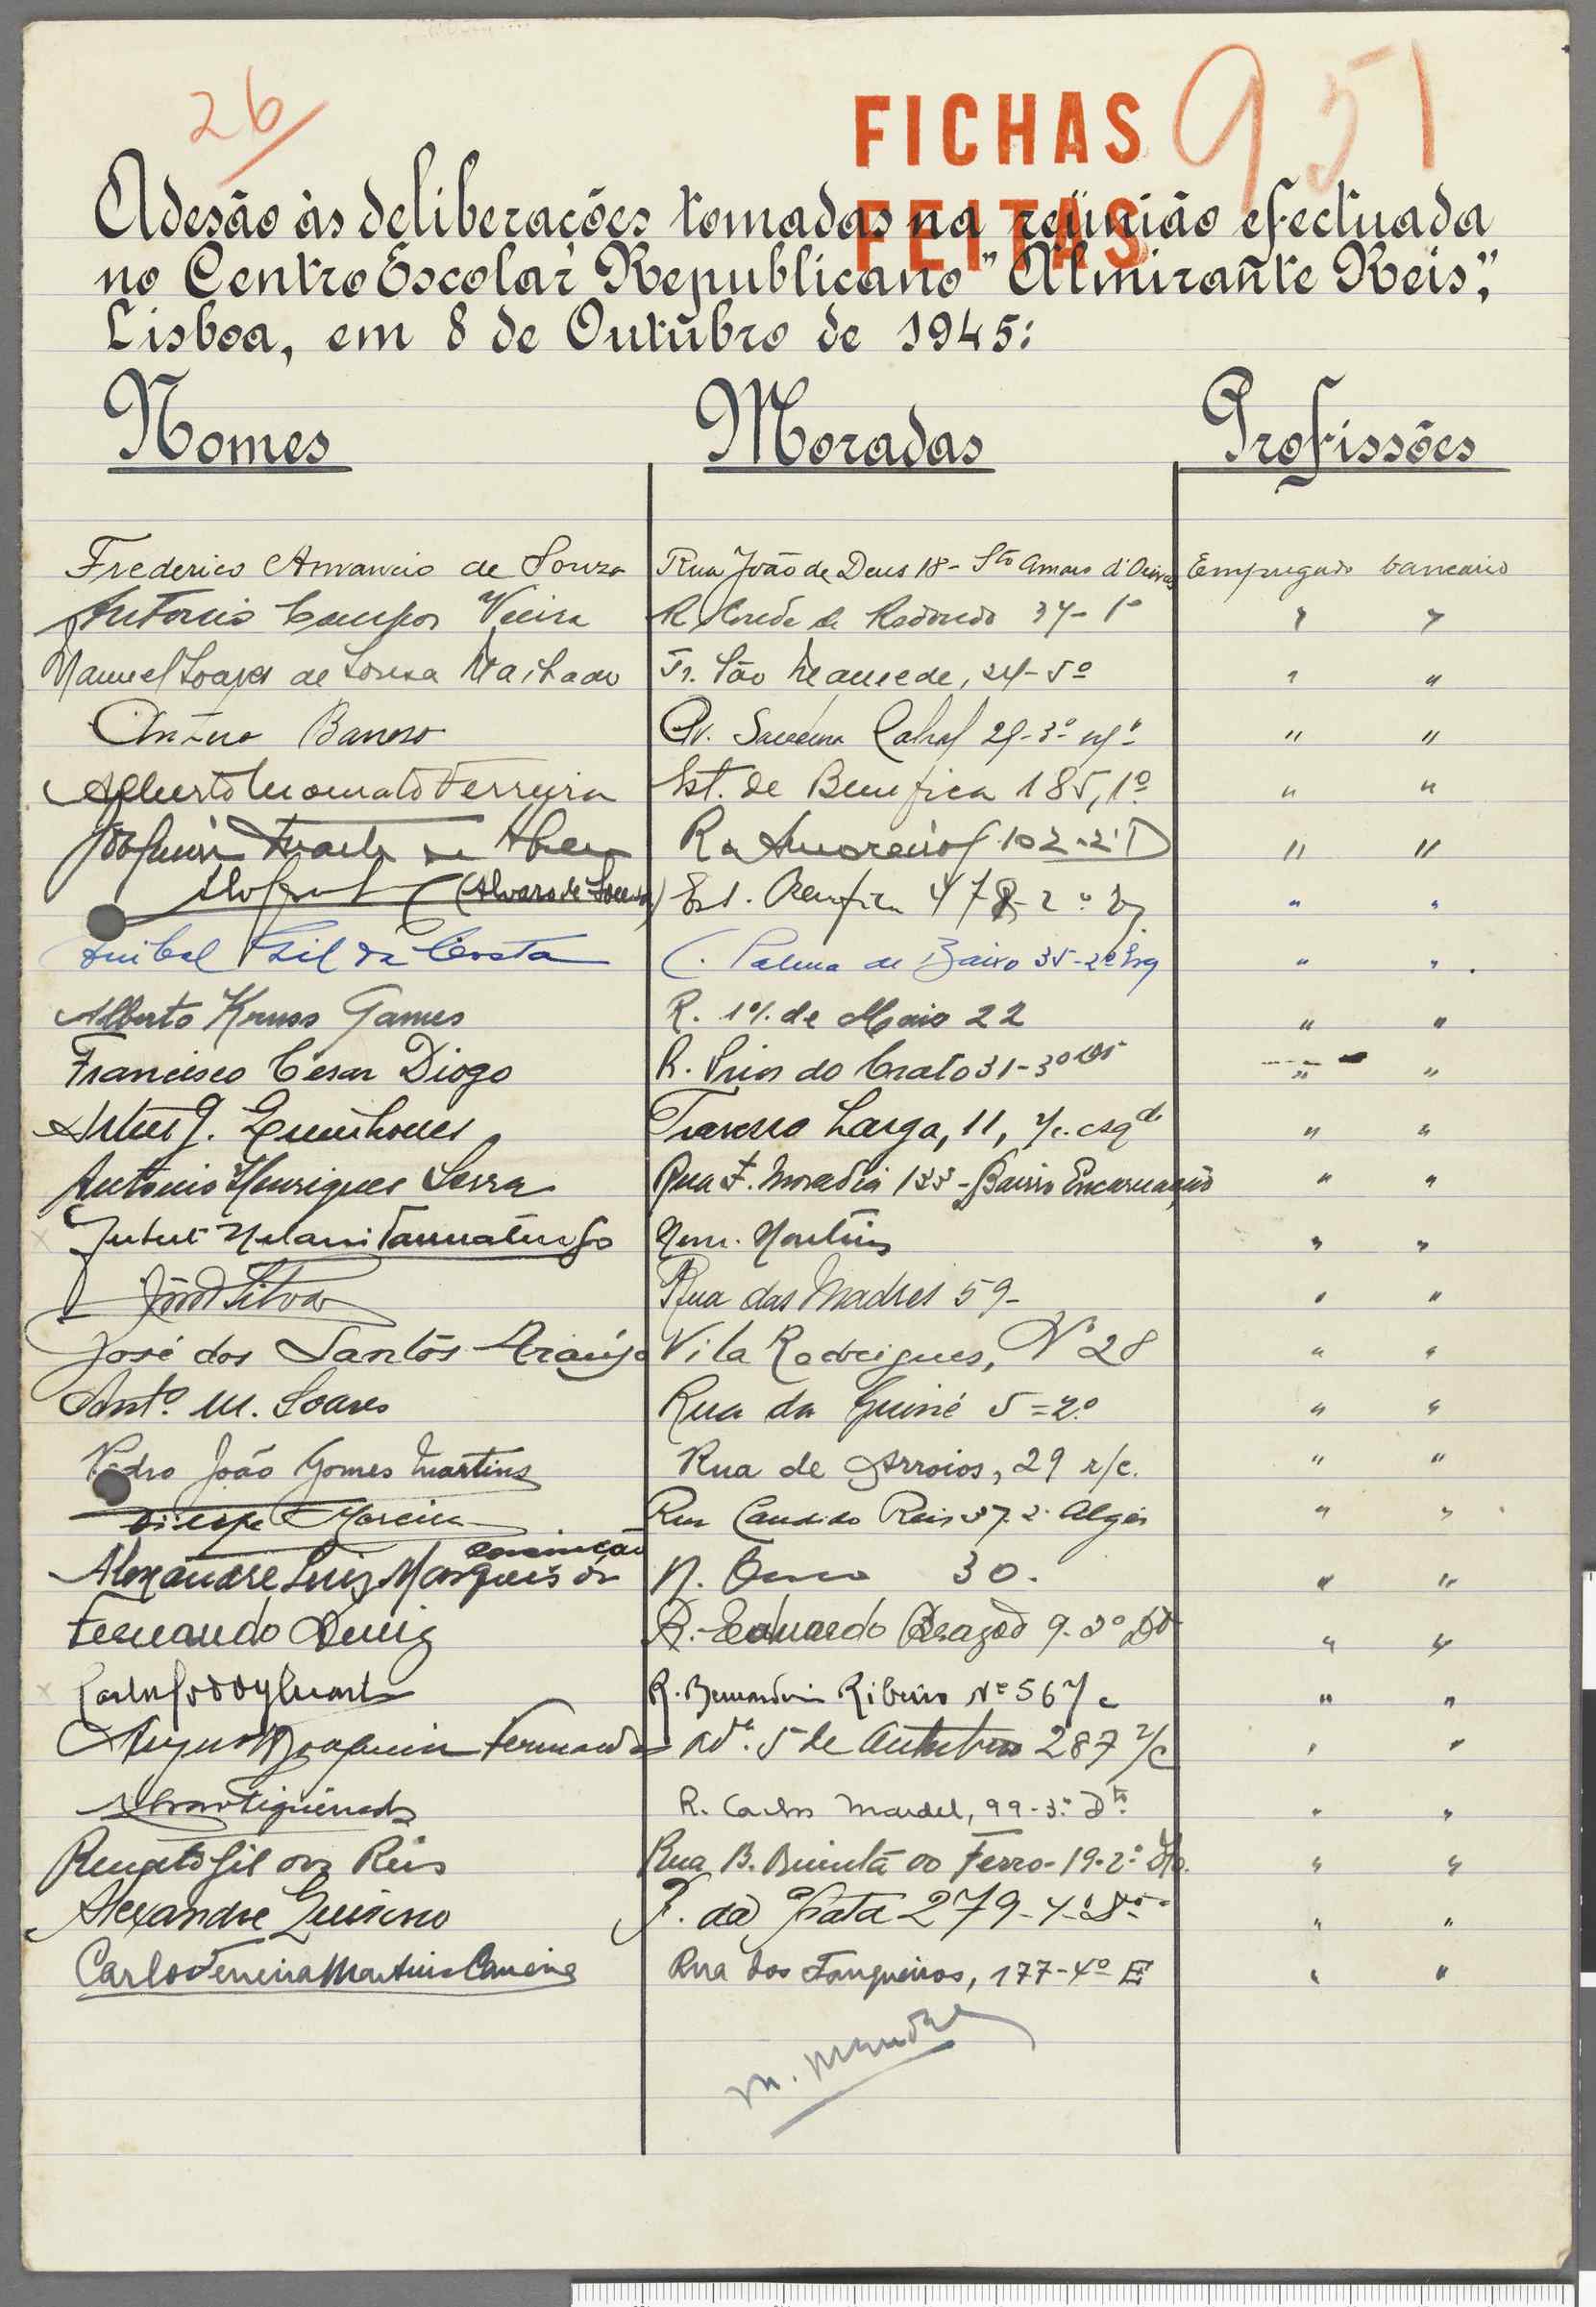 26
FICHAS 951
FEITAS
Adesão às deliberações tomadas na reünião efectuada
no Centro Escolar Republicano "Almirante Reis",
Lisboa, em 8 de Outubro de 1945:
Nomes Moradas Profissões
Frederico Amancio de Souza Rua João de Deus 18 - Sto Amaro d'Oeiras Empregado bancario
Antonio Campos Vieira R. Conde de Redondo 37-1º " "
Manuel Soares de Sousa Machado Tr. São Mamede, 24-5º " "
Barroso Av. Sacadura Cabral 29-3º " "
Alberto Ferreira Est. de Benfica 185, 1º " "
Joaquim Duarte de Abreu R. Amoreiras 102-2º D " "
(Alvaro de Est. Benfica 478-2º " "
Anibal Gil da Costa C. Palma de Baixo 35-2º Esq " "
Alberto Kruss Gomes R. 1º de Maio 22 " "
Francisco Cesar Diogo R. Prior do Crato 31-3º " "
Artur J. Travessa Larga, 11, r/c. esqdo " "
Antonio Henriques Serra Rua F. Moradia 133 - Bairro Encarnação " "
Taumaturgo Mem. Martins " "
Silva Rua das Madres 59- " "
José dos Santos Araújo Vila Rodrigues, Nº 28 " "
Antº. M. Soares Rua da Guiné 5=2º " "
Pedro João Gomes Martins Rua de Arroios, 29 r/c. " "
Moreira Rua Candido Reis 37-2º Algés " "
Alexandre Luiz Marques da Conceição 30. " "
Fernando Diniz R. Eduardo 9-3º Dtº " "
R. Bernardim Ribeiro Nº 56 r/c " "
Joaquim Fernandes Avª. 5 de Outubro 287 r/c " "
R. Carlos Mardel, 99-3º Dtº " "
Renato Gil dos Reis Rua B. Quintã do Ferro-19-2º " "
Alexandre R. da Prata 279-4º " "
Carlos Ferreira Martins Rua dos Fanqueiros, 177-4º E " "